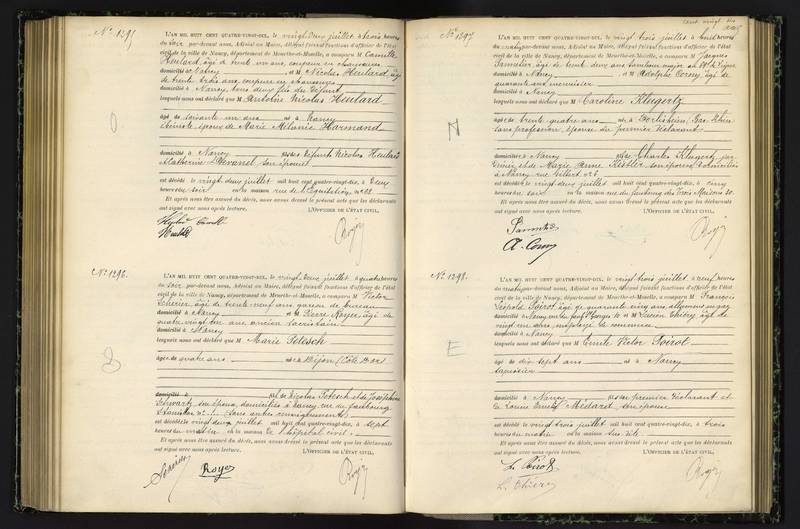 N° 1295
L'AN MIL HUIT CENT QUATRE-VINGT-DIX, le vingt deux juillet à trois heures
du soir par-devant nous, Adjoint au Maire, délégué faisant fonctions d'officier de l'état
civil de la ville de Nancy, département de Meurthe-et-Moselle, a comparu M Camille
Heulard, âgé de trente un ans, coupeur en chaussures
domicilié à Nancy et M Nicolas Heulard, âgé
de trente trois ans, coupeur en chaussures
domicilié à Nancy, tous deux fils du défunt
lesquels nous ont déclaré que M Antoine Nicolas Heulard
âgé de soixante un ans né à Nancy
époux de Marie Mélanie Harmand
domicilié à Nancy fils de défunts Nicolas Heulard
et Catherine son épouse
est décédé le vingt deux juillet mil huit cent quatre-vingt-dix, à deux
heures du soir en la maison rue de l'Equitation n° 28
Et après nous être assuré du décès, nous avons dressé le présent acte que les déclarants
ont signé avec nous après lecture. L'OFFICIER DE L'ÉTAT CIVIL,
N° 1296.
B
L'AN MIL HUIT CENT QUATRE-VINGT-DIX, le vingt deux juillet à quatre heures
du soir par-devant nous, Adjoint au Maire, délégué faisant fonctions d'officier de l'état
civil de la ville de Nancy, département de Meurthe-et-Moselle, a comparu M Victor
Scherier, âgé de trente neuf ans garçon de bureau
domicilié à Nancy et M Pierre Royer, âgé de
quatre vingt un ans, ancien sacristain
domicilié à Nancy
lesquels nous ont déclaré que M Marie Petesch
âgée de quatre ans née à Dijon (Côte d'or)
domicilié à fille de Nicolas Petesch et de Joséphine
Schwartz son épouse, domiciliés à Nancy, rue du faubourg
Stanislas n° (sans autres renseignements)
est décédée le vingt deux juillet mil huit cent quatre-vingt-dix, à sept
heures du matin en la maison de l'hôpital civil
Et après nous être assuré du décès, nous avons dressé le présent acte que les déclarants
ont signé avec nous après lecture. L'OFFICIER DE L'ÉTAT CIVIL,
Royer
cent vingt dix
N° 1297.
N
L'AN MIL HUIT CENT QUATRE-VINGT-DIX, le vingt trois juillet à huit heures
du matin par-devant nous, Adjoint au Maire, délégué faisant fonctions d'officier de l'état
civil de la ville de Nancy, département de Meurthe-et-Moselle, a comparu M Jaques
âgé de trente deux ans, tambour major au
domicilié à Nancy et M Adolphe Corny, âgé de
quarante ans
domicilié à Nancy
lesquels nous ont déclaré que M Caroline Klugertz
âgée de trente quatre ans née à Gerlisheim (Bas Rhin)
sans profession, épouse du premier déclarant
domiciliée à Nancy fille de Charles Klugertz
et de Marie Anne Kestler son épouse domiciliés
à Nancy, rue Villers n° 6
est décédée le vingt deux juillet mil huit cent quatre-vingt-dix, à cinq
heures du soir en la maison rue du faubourg des Trois Maisons 30.
Et après nous être assuré du décès, nous avons dressé le présent acte que les déclarants
ont signé avec nous après lecture. L'OFFICIER DE L'ÉTAT CIVIL,
A. Corny
N° 1298.
E
L'AN MIL HUIT CENT QUATRE-VINGT-DIX, le vingt trois juillet à neuf heures
du matin par-devant nous, Adjoint au Maire, délégué faisant fonctions d'officier de l'état
civil de la ville de Nancy, département de Meurthe-et-Moselle, a comparu M François
Léopold Poirot, âgé de quarante cinq ans, allumeur au gaz
domicilié à Nancy rue du faubg St Georges et M Lucien Thiéry, âgé de
vingt un ans, employé de commerce
domicilié à Nancy
lesquels nous ont déclaré que M Emile Victor Poirot
âgé de dix sept ans né à Nancy
tapissier
domicilié à Nancy fils du premier déclarant et
de Médard son épouse
est décédé le vingt trois juillet mil huit cent quatre-vingt-dix, à trois
heures du matin en la maison sus dite
Et après nous être assuré du décès, nous avons dressé le présent acte que les déclarants
ont signé avec nous après lecture. L'OFFICIER DE L'ÉTAT CIVIL,
L. Poirot
L. Thiéry